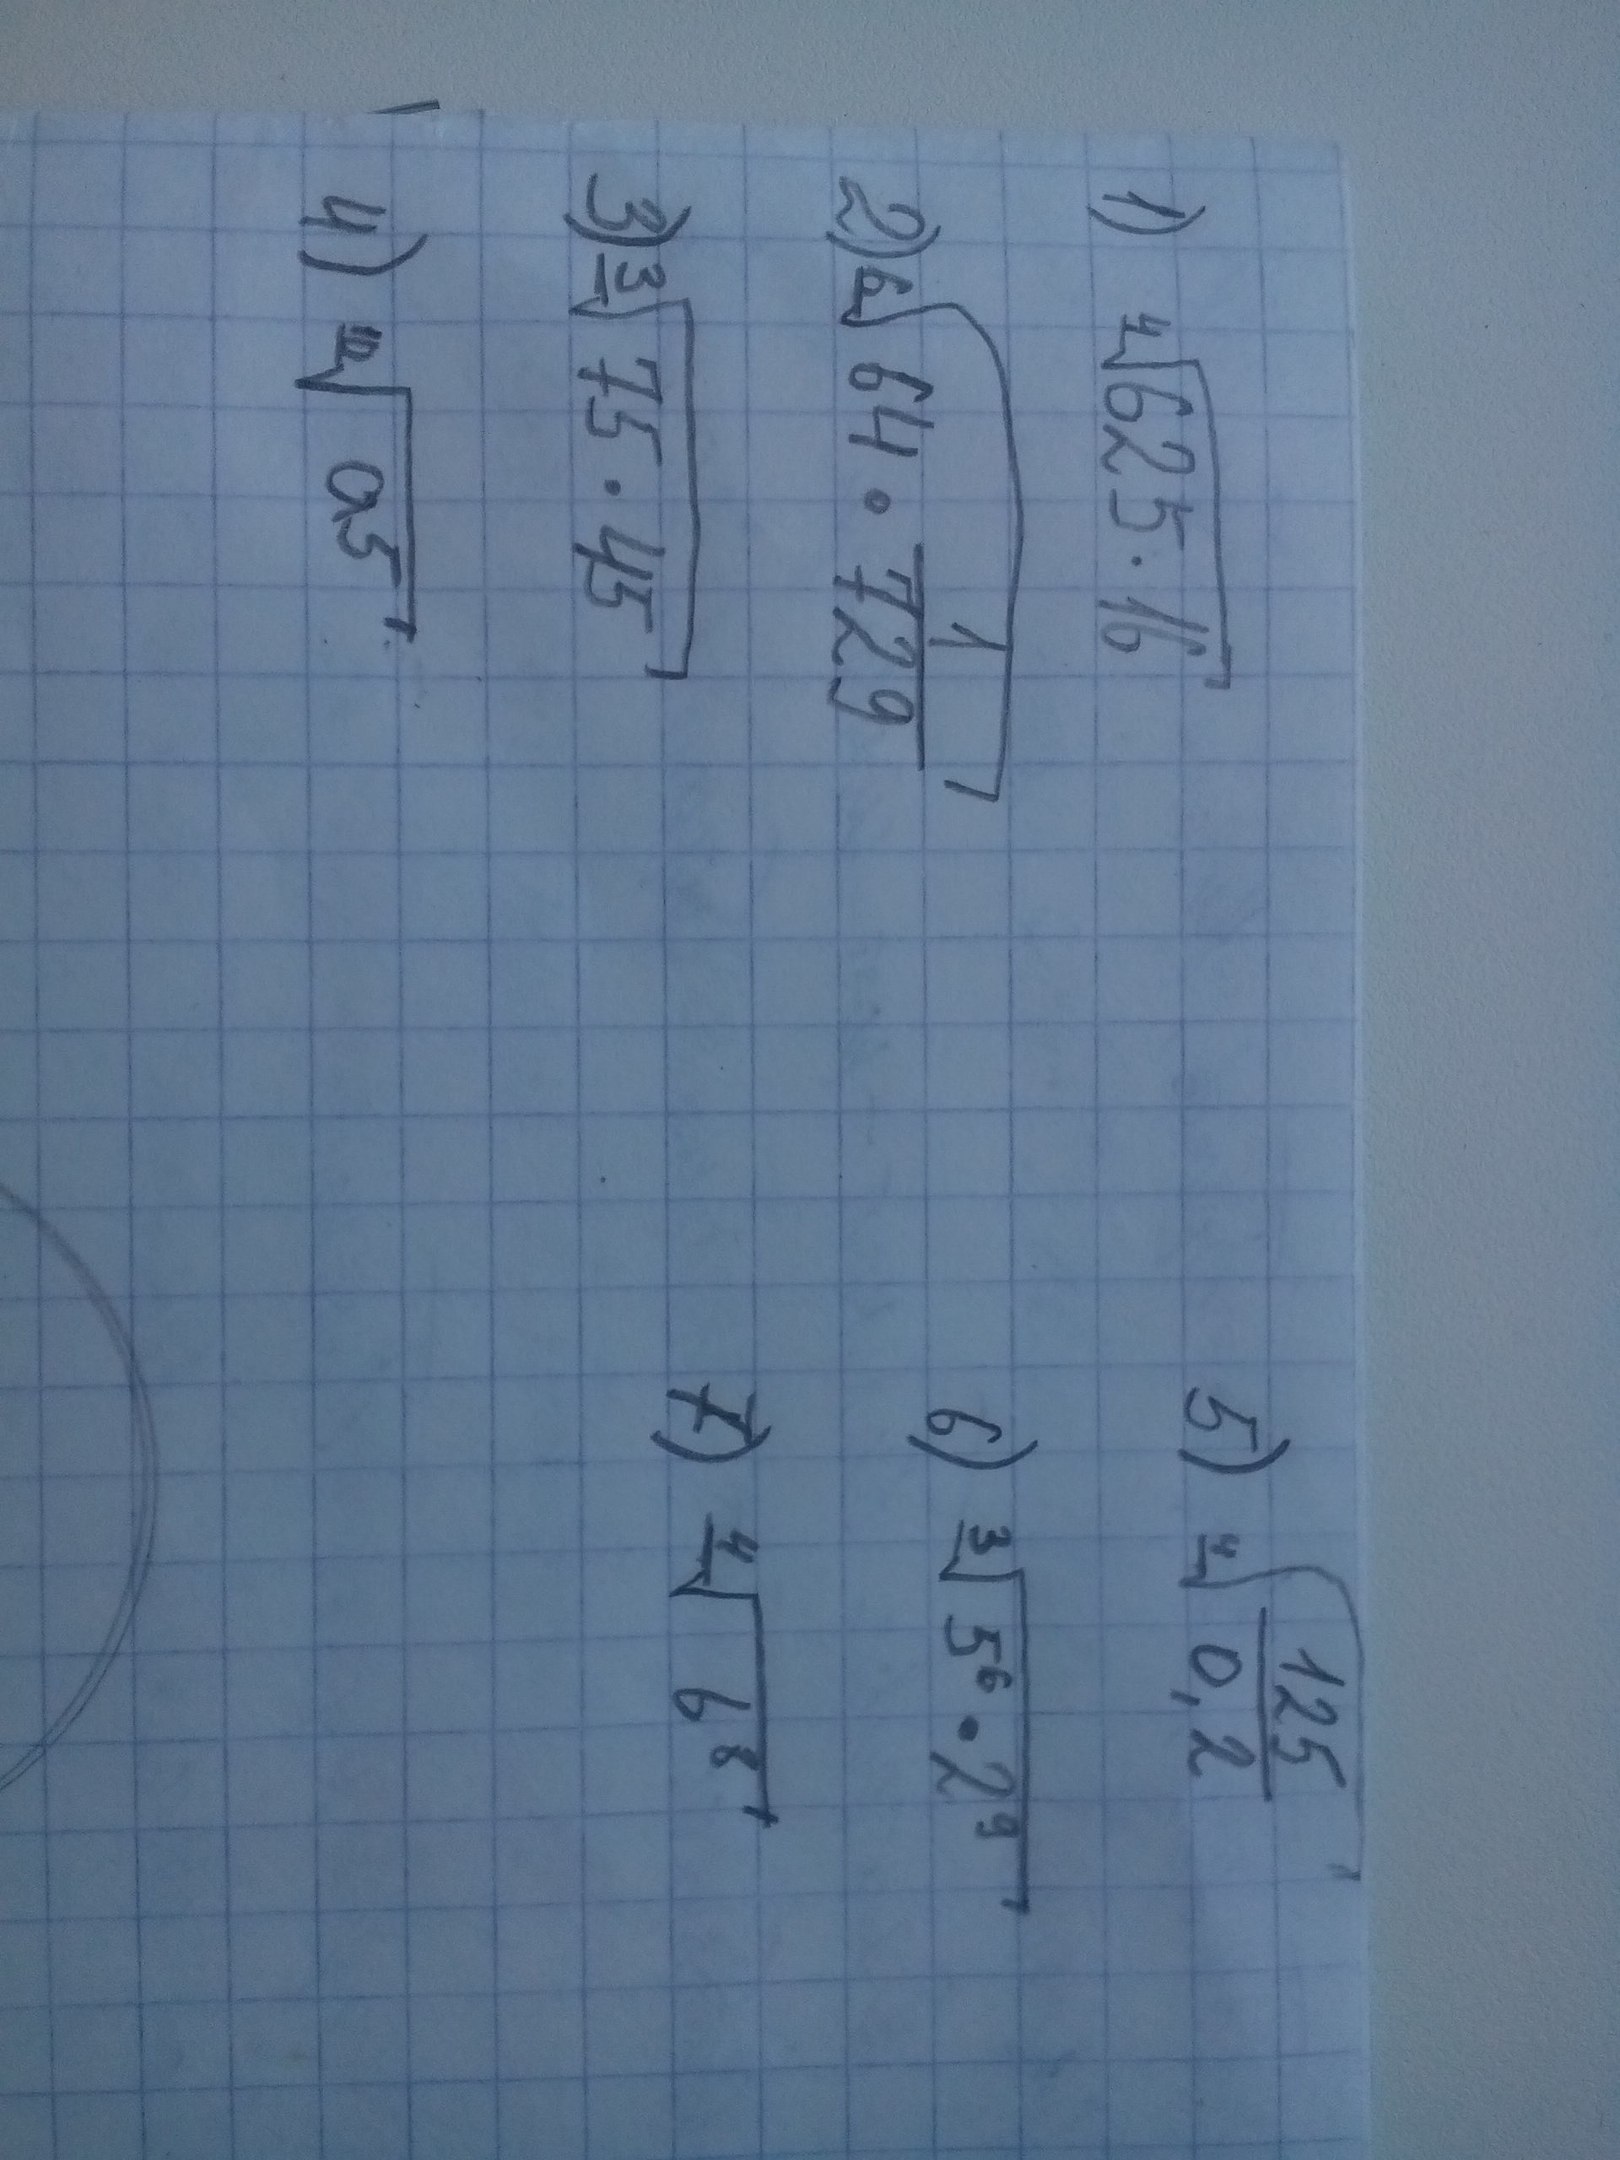 1) ⁴√625·16
2) ⁶√64·1/729
3) ³√75·45
4) ¹⁰√a⁵
5) ⁴√125/0,2
6) ³√5⁶·2⁹
7) ⁴√6⁸